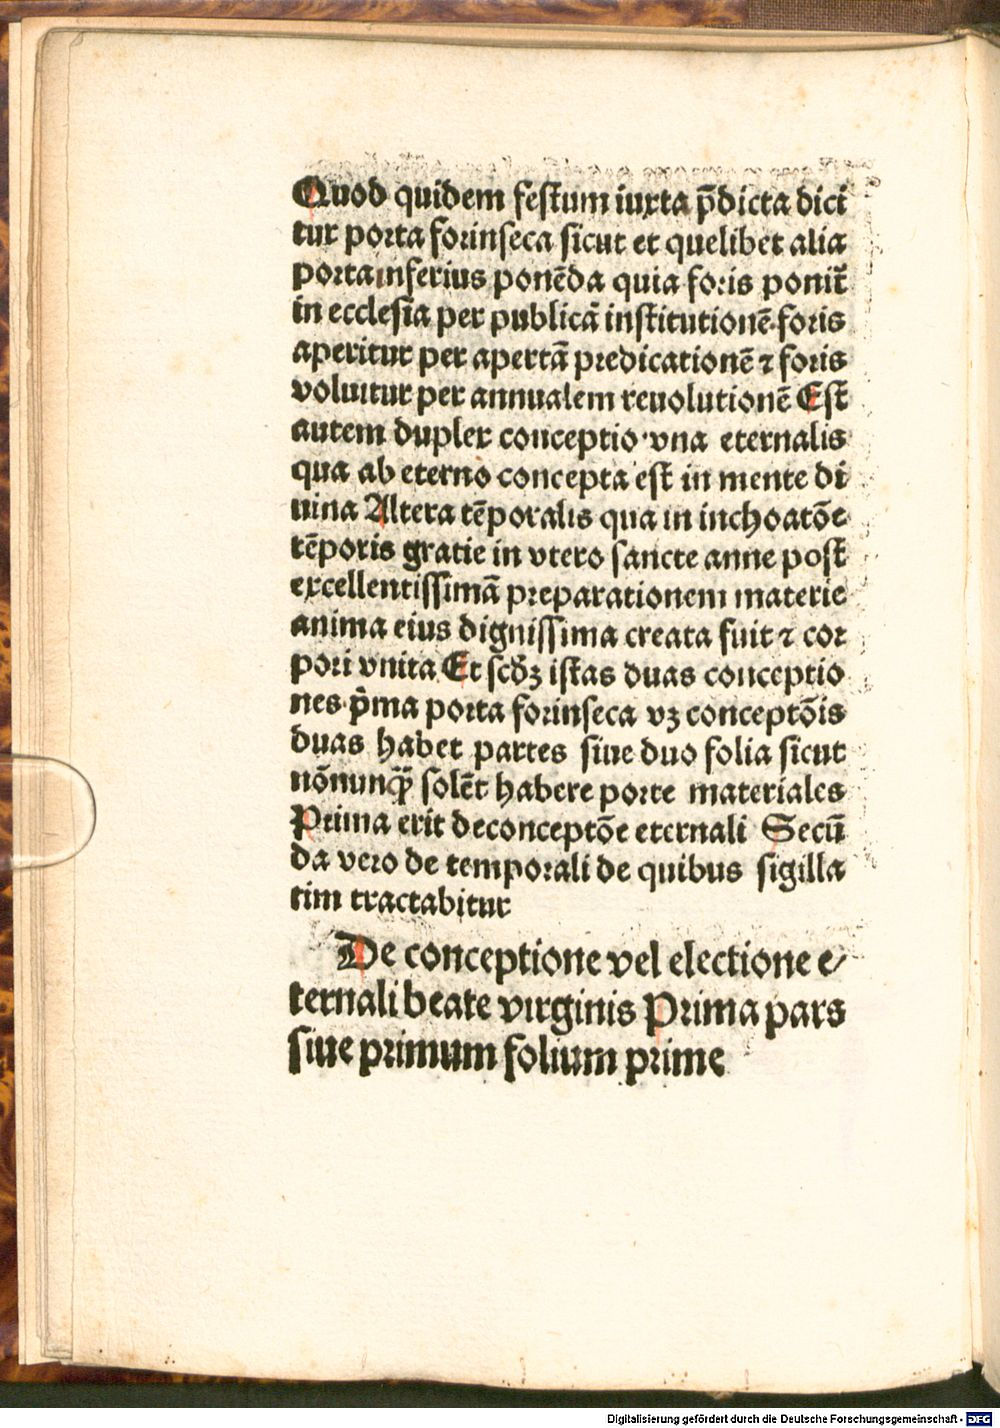 Quod quidem festum iuxta p̄dicta dici
tur porta forinseca sicut et quelibet alia
porta inferius ponēda quia foris ponit᷑
in ecclesia per publicā institutionē foris
aperitur per apertā predicationē ⁊ foris
voluitur per annualem reuolutionē Est
autem duplex conceptio·vna eternalis
qua ab eterno concepta est in mente di
uina Altera tēporalis qua in inchoatōe
tēporis gratie in vtero sancte anne post
excellentissimā preparationem materie
anima eius dignissima creata fuit ⁊ cor
pori vnita Et scd̄ꝫ istas duas conceptio
nes p̄ma porta forinseca vꝫ conceptōis
duas habet partes siue duo folia sicut
nōnunqꝫ̄ solēt habere porte materiales
Prima erit deconceptōe eternali Secū
da vero de temporali de quibus sigilla
tim tractabitur
De conceptione vel electione e⸗
ternali beate virginis Prima pars
siue primum folium prime
Digitalisierung gefördert durch die Deutsche Forschungsgemeinschaft - DFG